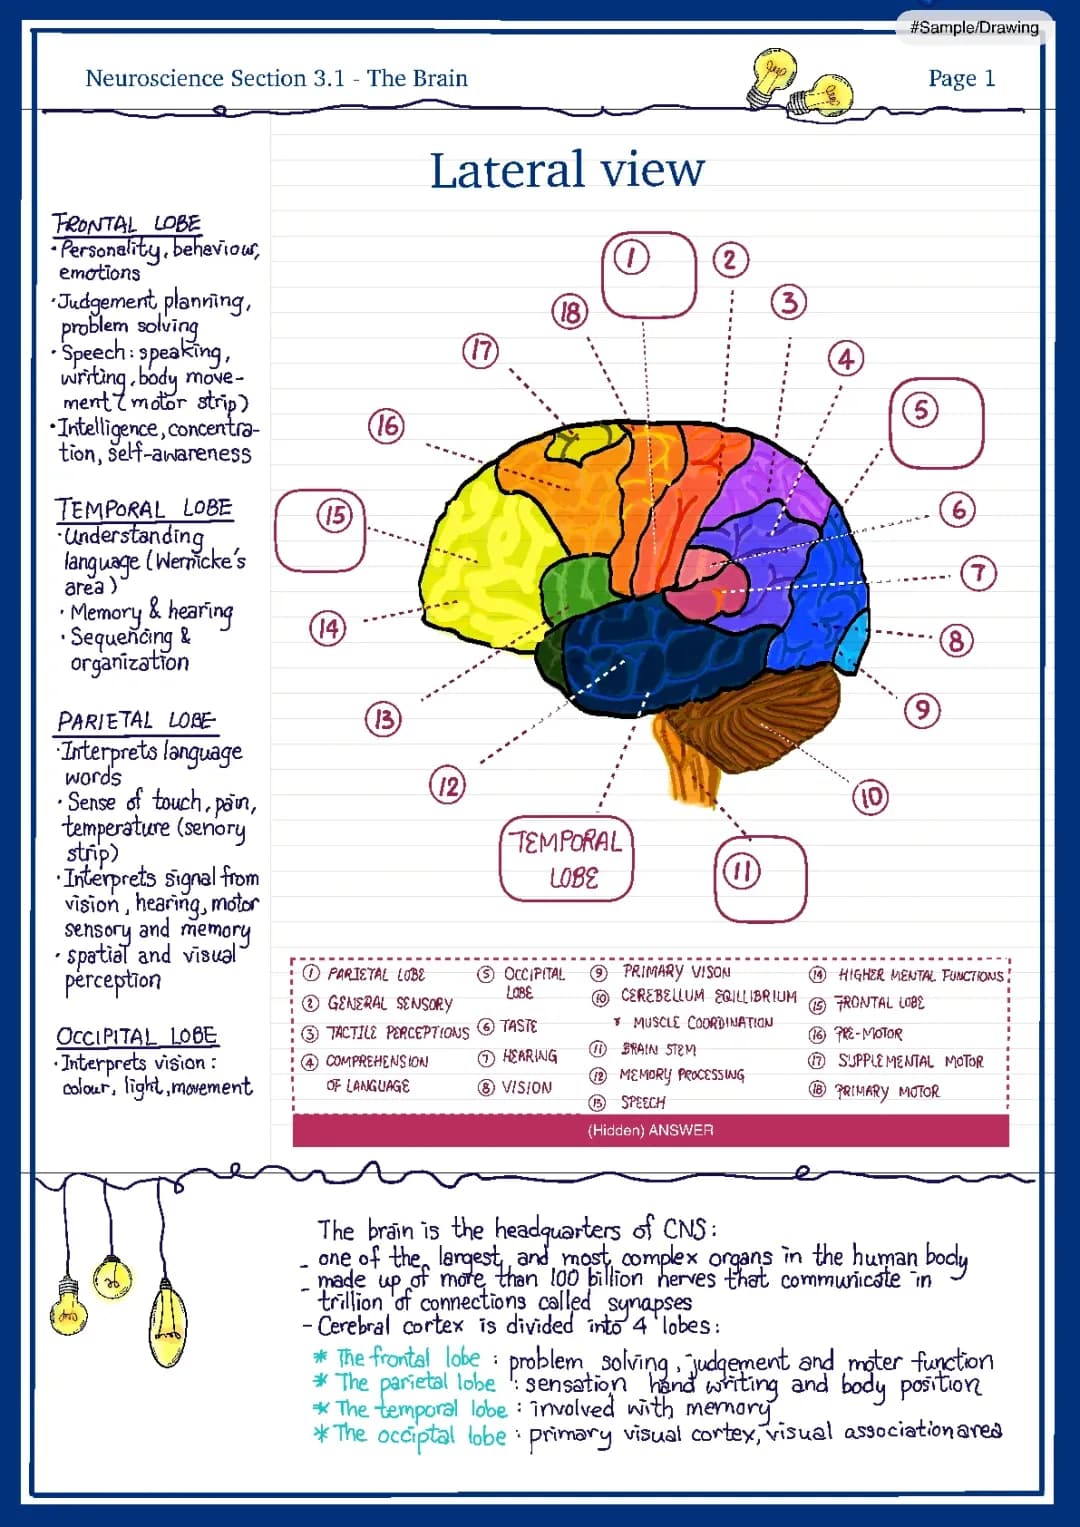 #Sample/Drawing
Neuroscience Section 3.1 - The Brain
Page 1
Lateral view
FRONTAL LOBE
· Personality, behaviour,
emotions
· Judgement planning,
problem solving
· Speech: speaking,
writing, body move-
ment (motor strip)
· Intelligence, concentra-
tion, self-awareness
TEMPORAL LOBE
· Understanding
language (Wernicke's
area)
· Memory & hearing
· Sequencing &
organization
PARIETAL LOBE
· Interprets language
words
· Sense of touch, pain,
temperature (senory
strip)
· Interprets signal from
vision, hearing, motor
sensory and memory
· spatial and visual
perception
OCCIPITAL LOBE
· Interprets vision:
colour, light, movement
1
2
3
4
5
6
7
8
9
10
11
TEMPORAL
LOBE
12
13
14
15
16
17
18
1 PARIETAL LOBE
2 GENERAL SENSORY
3 TACTILE PERCEPTIONS
4 COMPREHENSION
OF LANGUAGE
5 OCCIPITAL
LOBE
6 TASTE
7 HEARING
8 VISION
9 PRIMARY VISON
10 CEREBELLUM EQILLIBRIUM
MUSCLE COORDINATION
11 BRAIN STEM
12 MEMORY PROCESSING
13 SPEECH
14 HIGHER MENTAL FUNCTIONS
15 FRONTAL LOBE
16 PRE-MOTOR
17 SUPPLEMENTAL MOTOR
18 PRIMARY MOTOR
(Hidden) ANSWER
The brain is the headquarters of CNS:
- one of the largest and most complex organs in the human body
- made up of more than 100 billion nerves that communicate in
trillion of connections called synapses
- Cerebral cortex is divided into 4 lobes:
* The frontal lobe : problem solving, judgement and moter function
* The parietal lobe : sensation, hand writing and body position
* The temporal lobe : involved with memory
* The occiptal lobe : primary visual cortex, visual association area